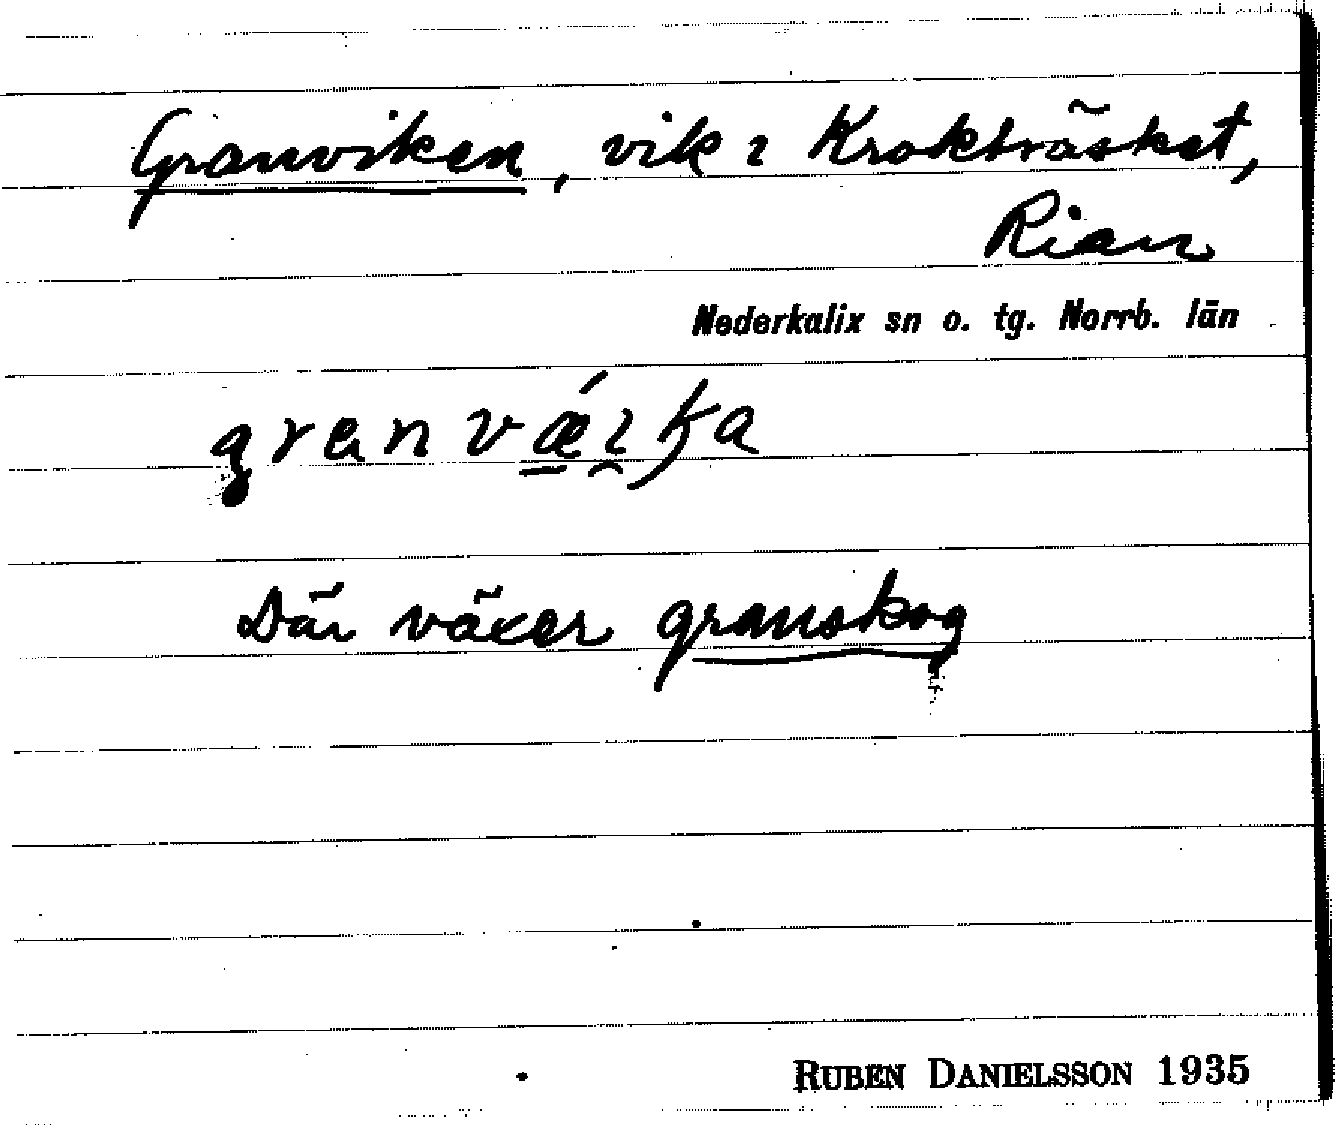 Granviken, vik i Krokträsket,
Rian
Nederkalix sn o. tg. Norrb. län
granvǽika
Där växer granskog
RUBEN DANIELSSON 1935